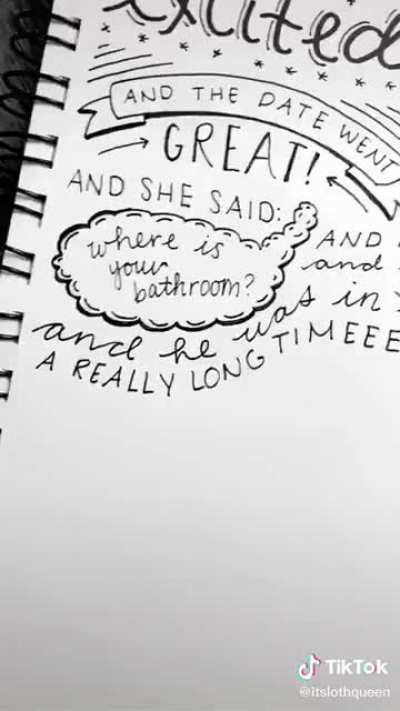 excited
AND THE DATE WENT
GREAT!
AND SHE SAID:
where is
your
bathroom?
AND
and
and he was in
A REALLY LONG TIMEEE
TikTok
@itslothqueen